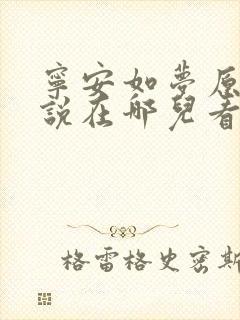 寧安如夢原
說在哪兒看
格雷格史密斯